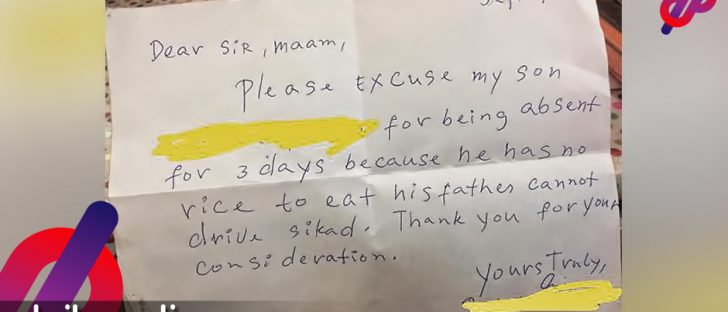 Dear SIR, maam,
Please Excuse my son
for being absent
for 3 days because he has no
rice to eat his father cannot
drive sikad. Thank you for your
consideration.
Yours Truly,